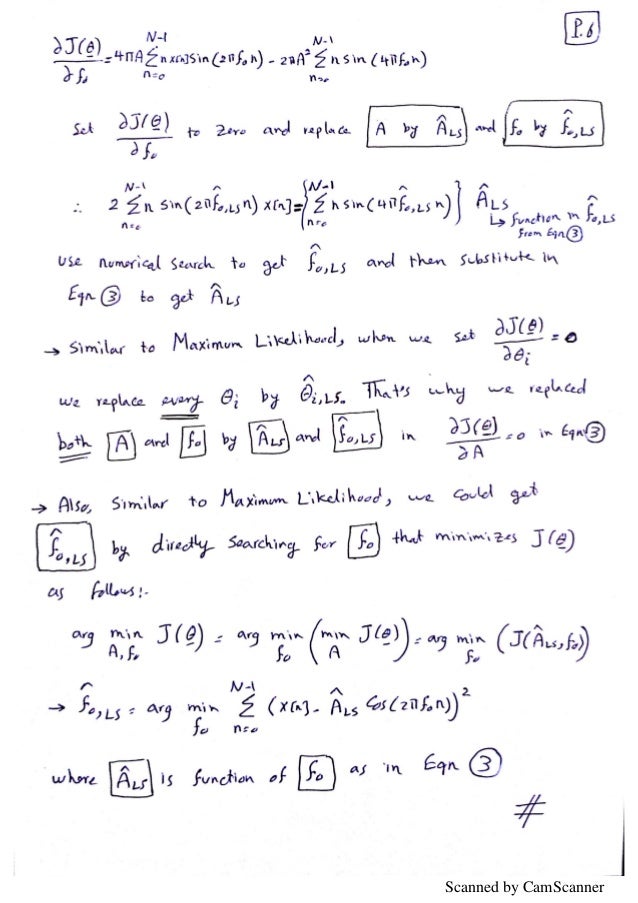 P.6
∂J(θ)/∂f₀ = 4πA Σ_{n=0}^{N-1} n x[n] sin(2πf₀n) - 2πA² Σ_{n=0}^{N-1} n sin(4πf₀n)
Set ∂J(θ)/∂f₀ to zero and replace A by Â_LS and f₀ by f̂₀,LS
∴ 2 Σ_{n=0}^{N-1} n sin(2πf̂₀,LS n) x[n] = {Σ_{n=0}^{N-1} n sin(4πf̂₀,LS n)} Â_LS
↳ function in f̂₀,LS
from Eqn ③
use numerical search to get f̂₀,LS and then substitute in
Eqn ③ to get Â_LS
→ Similar to Maximum Likelihood, when we set ∂J(θ)/∂θᵢ = 0
we replace every θᵢ by θ̂ᵢ,LS. That's why we replaced
both A and f₀ by Â_LS and f̂₀,LS in ∂J(θ)/∂A = 0 in Eqn ③
→ Also, Similar to Maximum Likelihood, we could get
f̂₀,LS by directly searching for f₀ that minimizes J(θ)
as follows:-
arg min_{A,f₀} J(θ) = arg min_{f₀} (min_A J(θ)) = arg min_{f₀} (J(Â_LS, f₀))
→ f̂₀,LS = arg min_{f₀} Σ_{n=0}^{N-1} (x[n] - Â_LS Cos(2πf₀n))²
where Â_LS is function of f₀ as in Eqn ③
#
Scanned by CamScanner